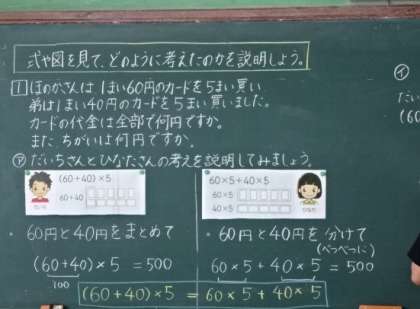 式や図を見て、どのように考えたのかを説明しよう。
1 ほのかさんは1まい60円のカードを5まい買い
弟は1まい40円のカードを5まい買いました。
カードの代金は全部で何円ですか。
また、ちがいは何円ですか。
㋐ だいちさんとひなたさんの考えを説明してみましょう。
(60+40)×5
60+40
60×5+40×5
60×5
40×5
・60円と40円をまとめて
(60+40)×5=500
100
・60円と40円を分けて
(べつべつに)
60×5+40×5=500
(60+40)×5=60×5+40×5
㋑
(60